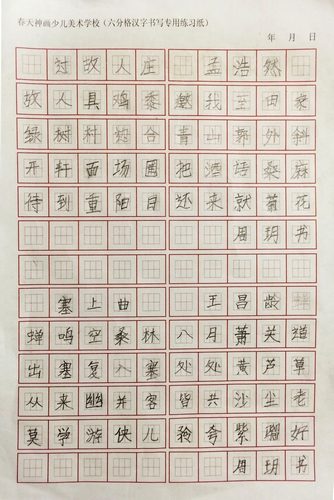 春天神画少儿美术学校（六分格汉字书写专用练习纸）
年 月 日
过故人庄 孟浩然
故人具鸡黍 邀我至田家
绿树村边合 青山郭外斜
开轩面场圃 把酒话桑麻
待到重阳日 还来就菊花
周玥书
塞上曲 王昌龄
蝉鸣空桑林 八月萧关道
出塞复入塞 处处黄芦草
从来幽并客 皆共沙尘老
莫学游侠儿 矜夸紫骝好
周玥书